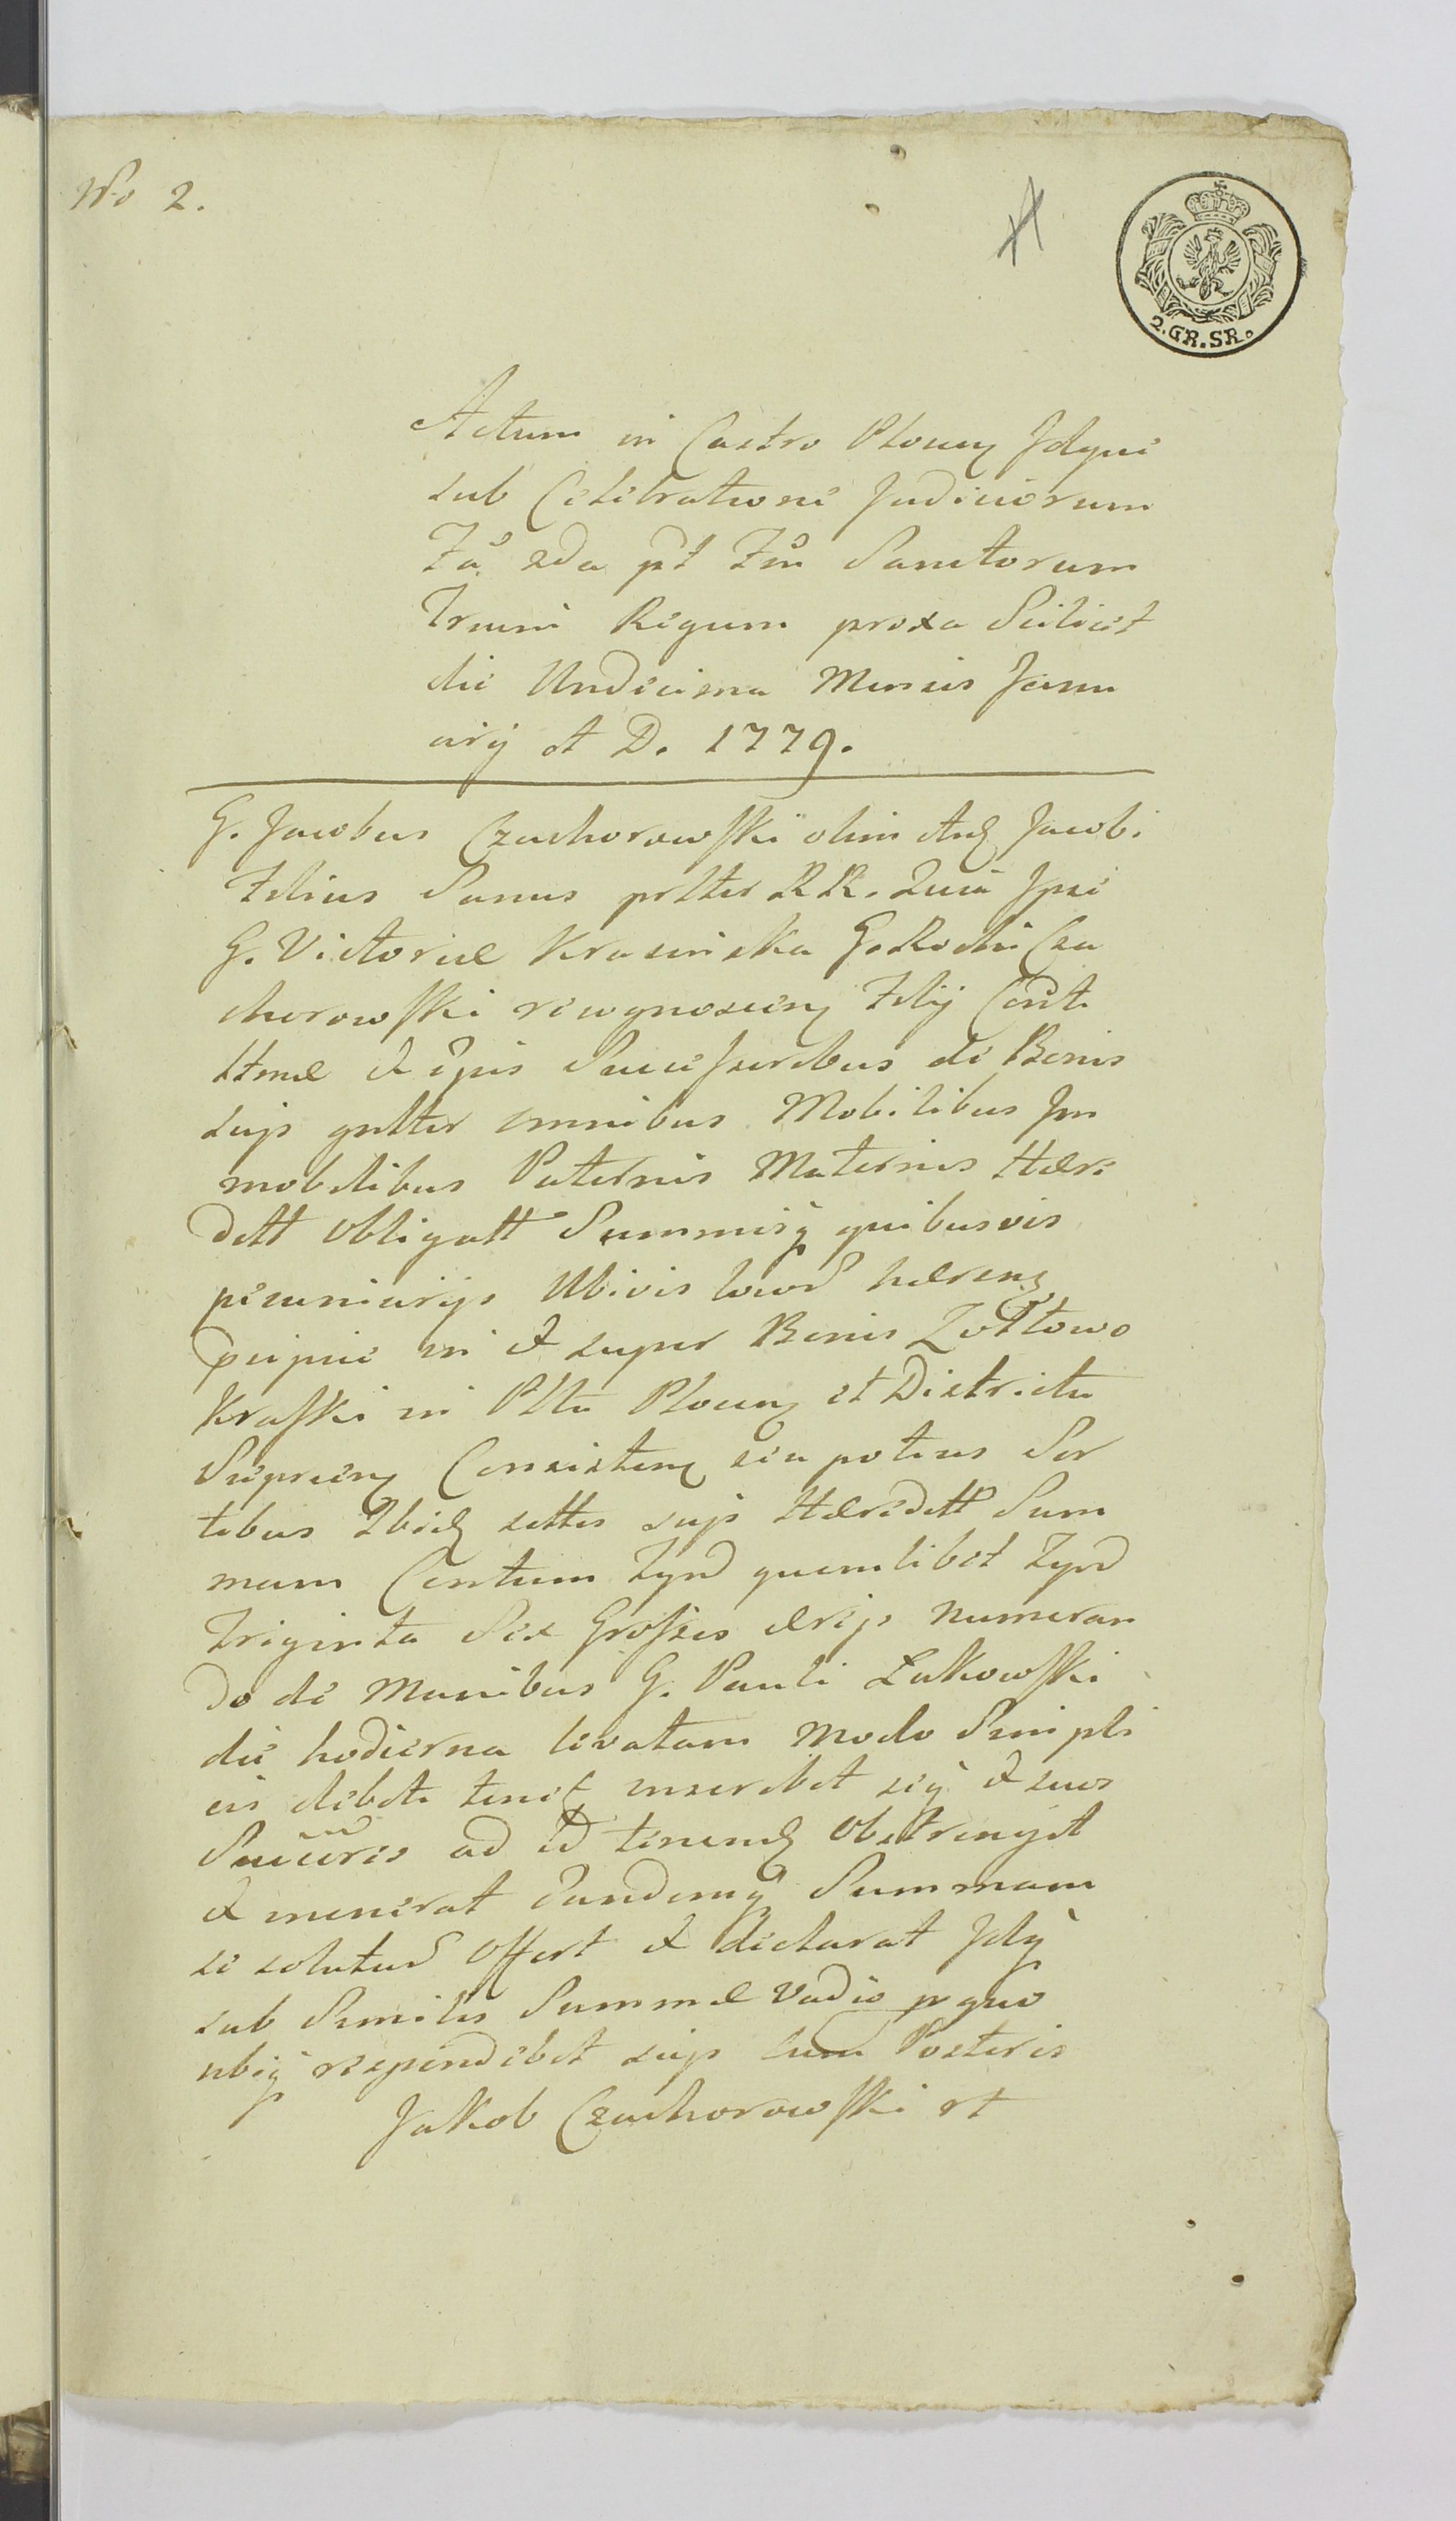 No 2.
2.GR.SR.
Actum in Castro Plocen Idque
sub Celebratione Judiciorum
Fa 2da pt Fm Sanctorum
Trium Regum proxa Scilicet
die Undecima Mensis Janu
arij A D. 1779.
G. Jacobus Czachorowski olim Jacobi
Filius Sanus prltter RR. Quia Ipse
G. Victoriæ Krasinska G. Rochi Cza
chorowski recognoscen Filij Cont
tlmæ & Ejus Successoribus de Bonis
suis gnltter omnibus Mobilibus Im
mobilibus Paternis Maternis Hære
dett Obligatt Summisq quibusvis
pecuniarijs Ubivis locord hæren
pcipue in & super Bonis Zołtowo
Kraski in Pltu Plocen et Districtu
Sieprcen Consisten seu potius Sor
tibus Ibid suis Hæredett Sum
mam Centum quemlibet
Triginta Sex Grossos ærijs numeran
do de Manibus G. Pauli Lukowski
die hodierna levatam Modo Simpli
cis debiti inscribit seq & suos
Succres ad id tenend Obstringit
& Eandemq Summam
se soluturd Offert & declarat Idq
sub Similis Summæ Vadio p quo
ubiq respondebit suis cum Posteris
Jakob Czachorowski